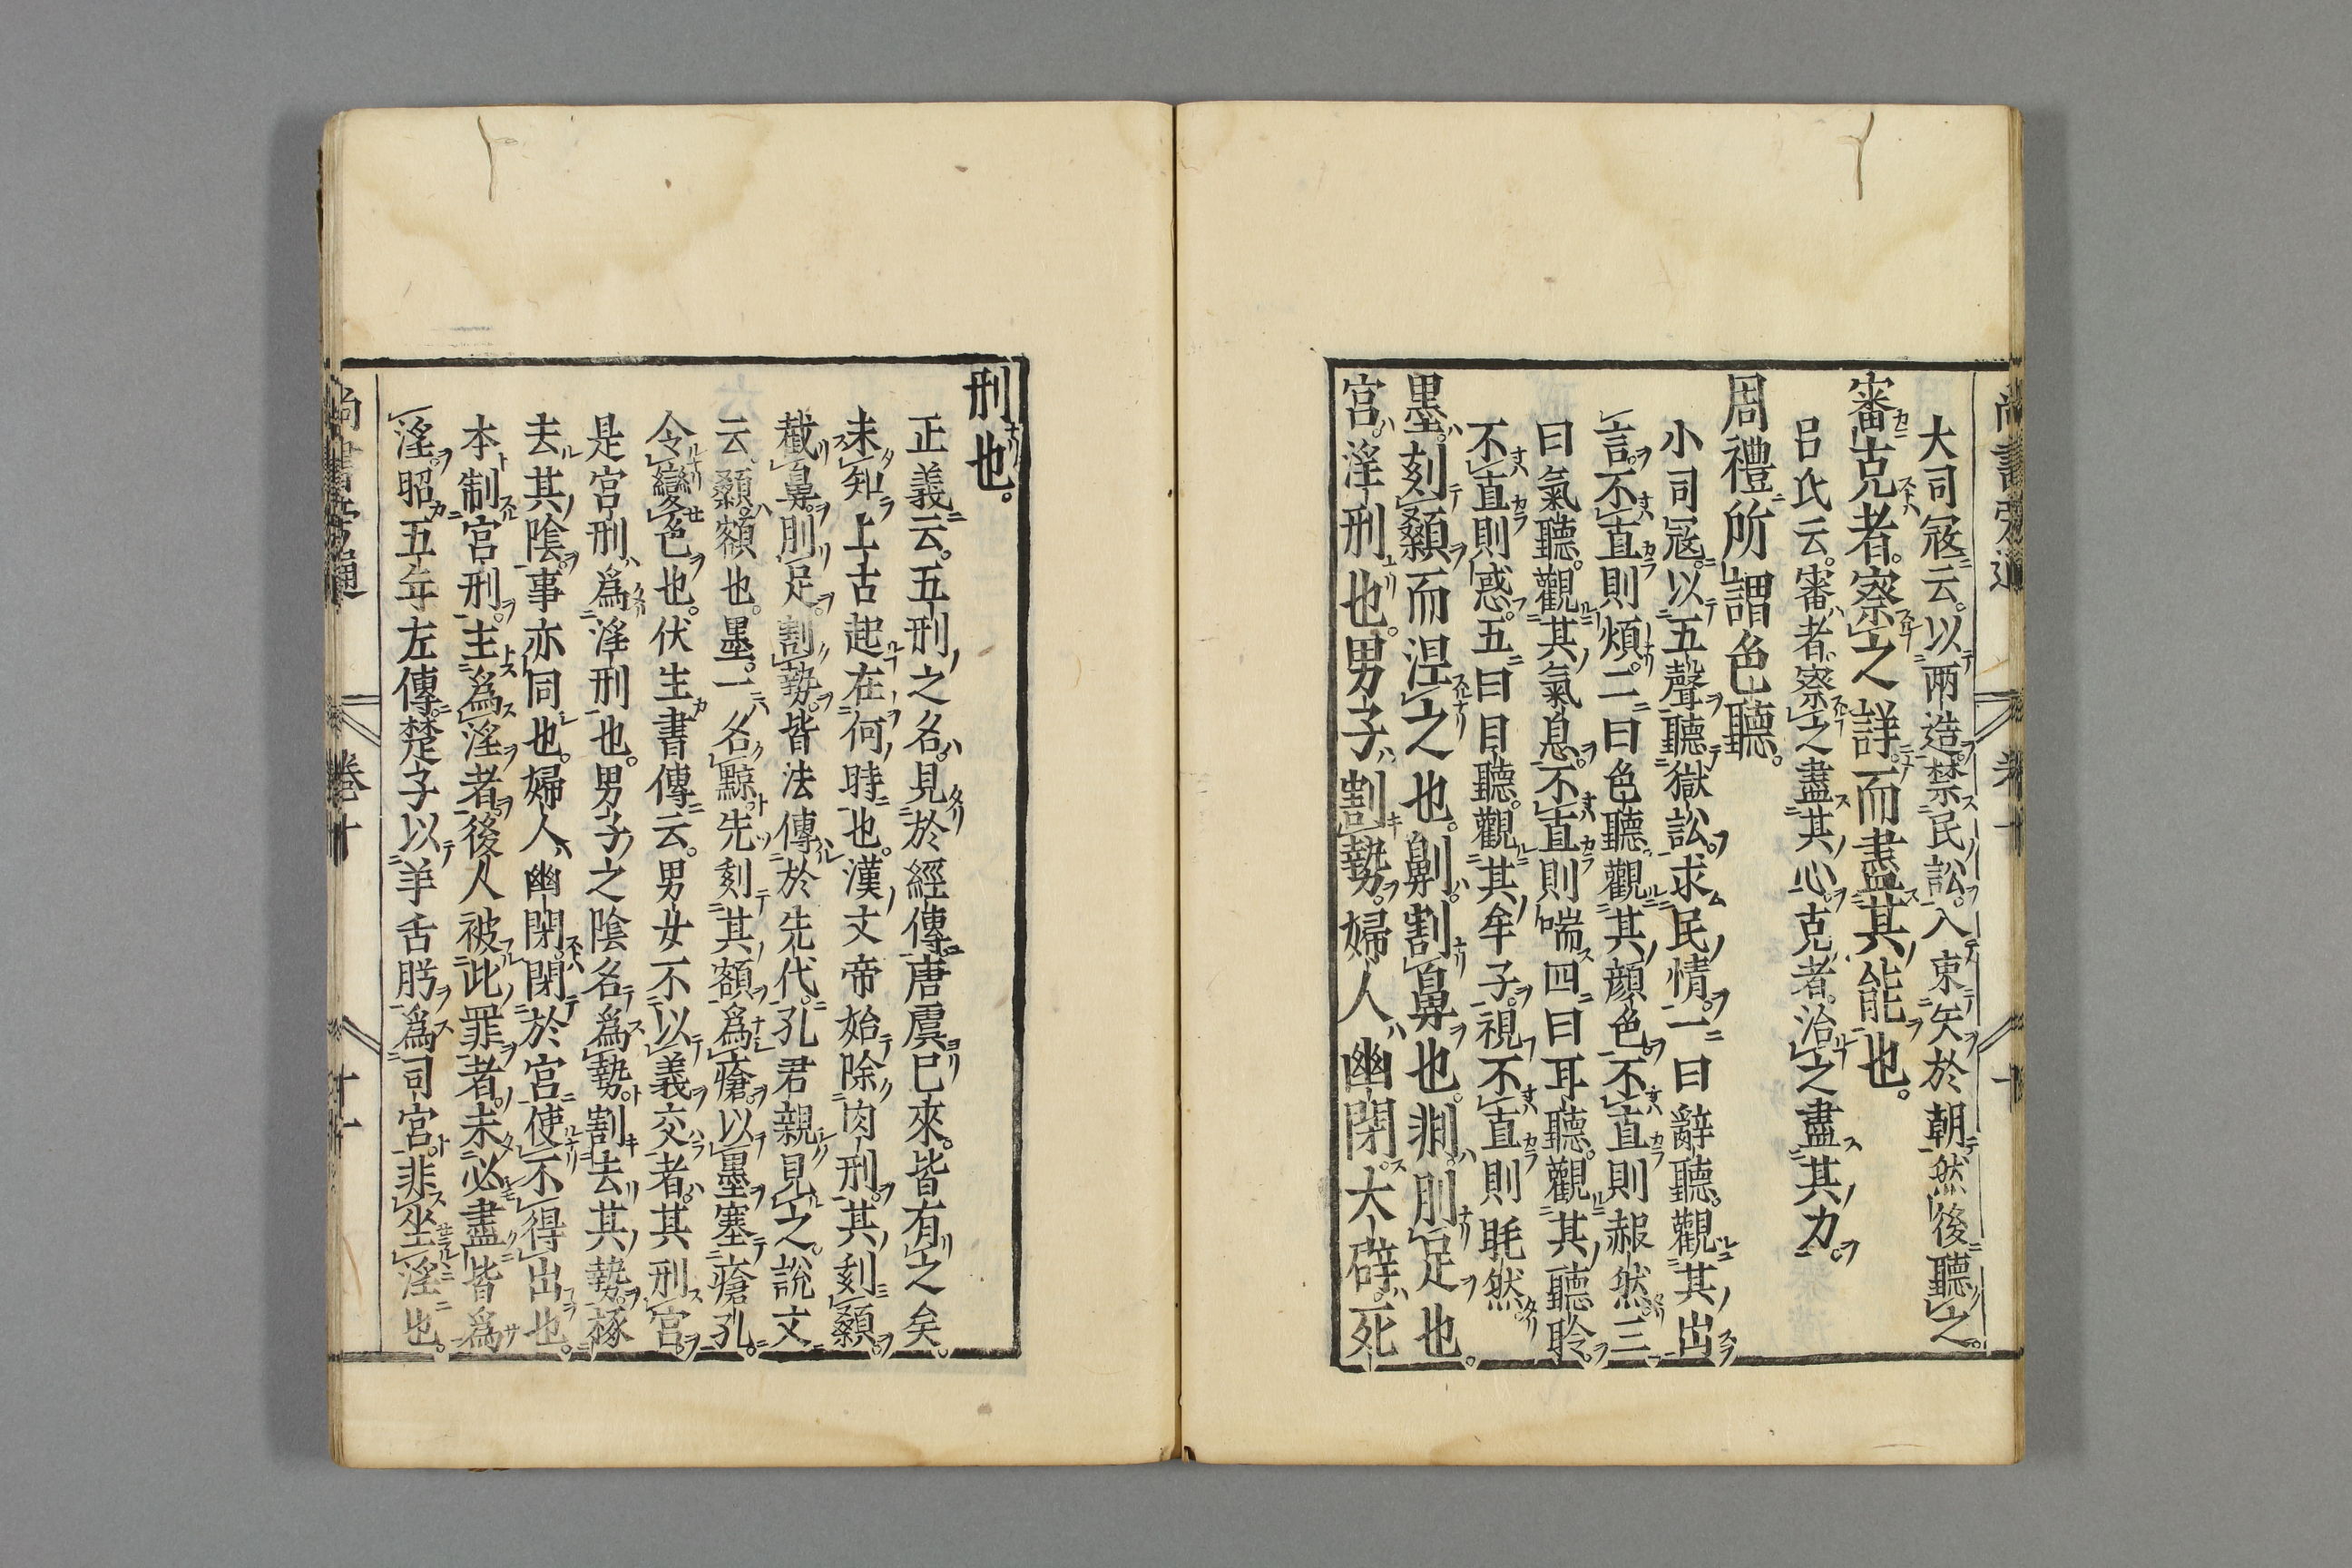 大司冦云。以兩造。禁民訟。入束矢於朝然後聽之。
審克者。察之詳。而盡其能也。
吕氏云。審者。察之盡其心。克者。治之盡其力。
周禮所謂色聽。
小司冦。以五聲聽獄訟。求民情。一曰辭聽。觀其出
言。不直則煩。二曰色聽。觀其顔色。不直則赧然。三
曰氣聽。觀其氣息。不直則喘四曰耳聽。觀其聽聆。
不直則惑。五曰目聽。觀其牟子。視不直則眊然。
墨。刻顙而湼之也。劓。割鼻也。剕。刖足也。
宮。淫刑也。男子割勢。婦人幽閉。大辟。死
刑也。
正義云。五刑之名。見於經傳。唐虞已來。皆有之矣。
未知上古起在何時也。漢文帝始除肉刑。其刻顙。
截鼻。刖足。割勢。皆法傳於先代。孔君親見之。說文
云。顙。額也。墨。一名黥。先刻其額爲瘡。以墨塞瘡孔。
令變色也。伏生書傳云。男女不以義交者。其刑宮。
是宮刑爲淫刑也。男子之陰名爲勢。割去其勢。椓
去其陰。事亦同也。婦人幽閉。閉於宮使不得出也。
本制宮刑。主爲淫者。後人被此罪者。未必盡皆爲
淫。昭五年左傳。楚子以羊舌肸爲司宮。非坐淫也。
尚書旁通 卷十 十一